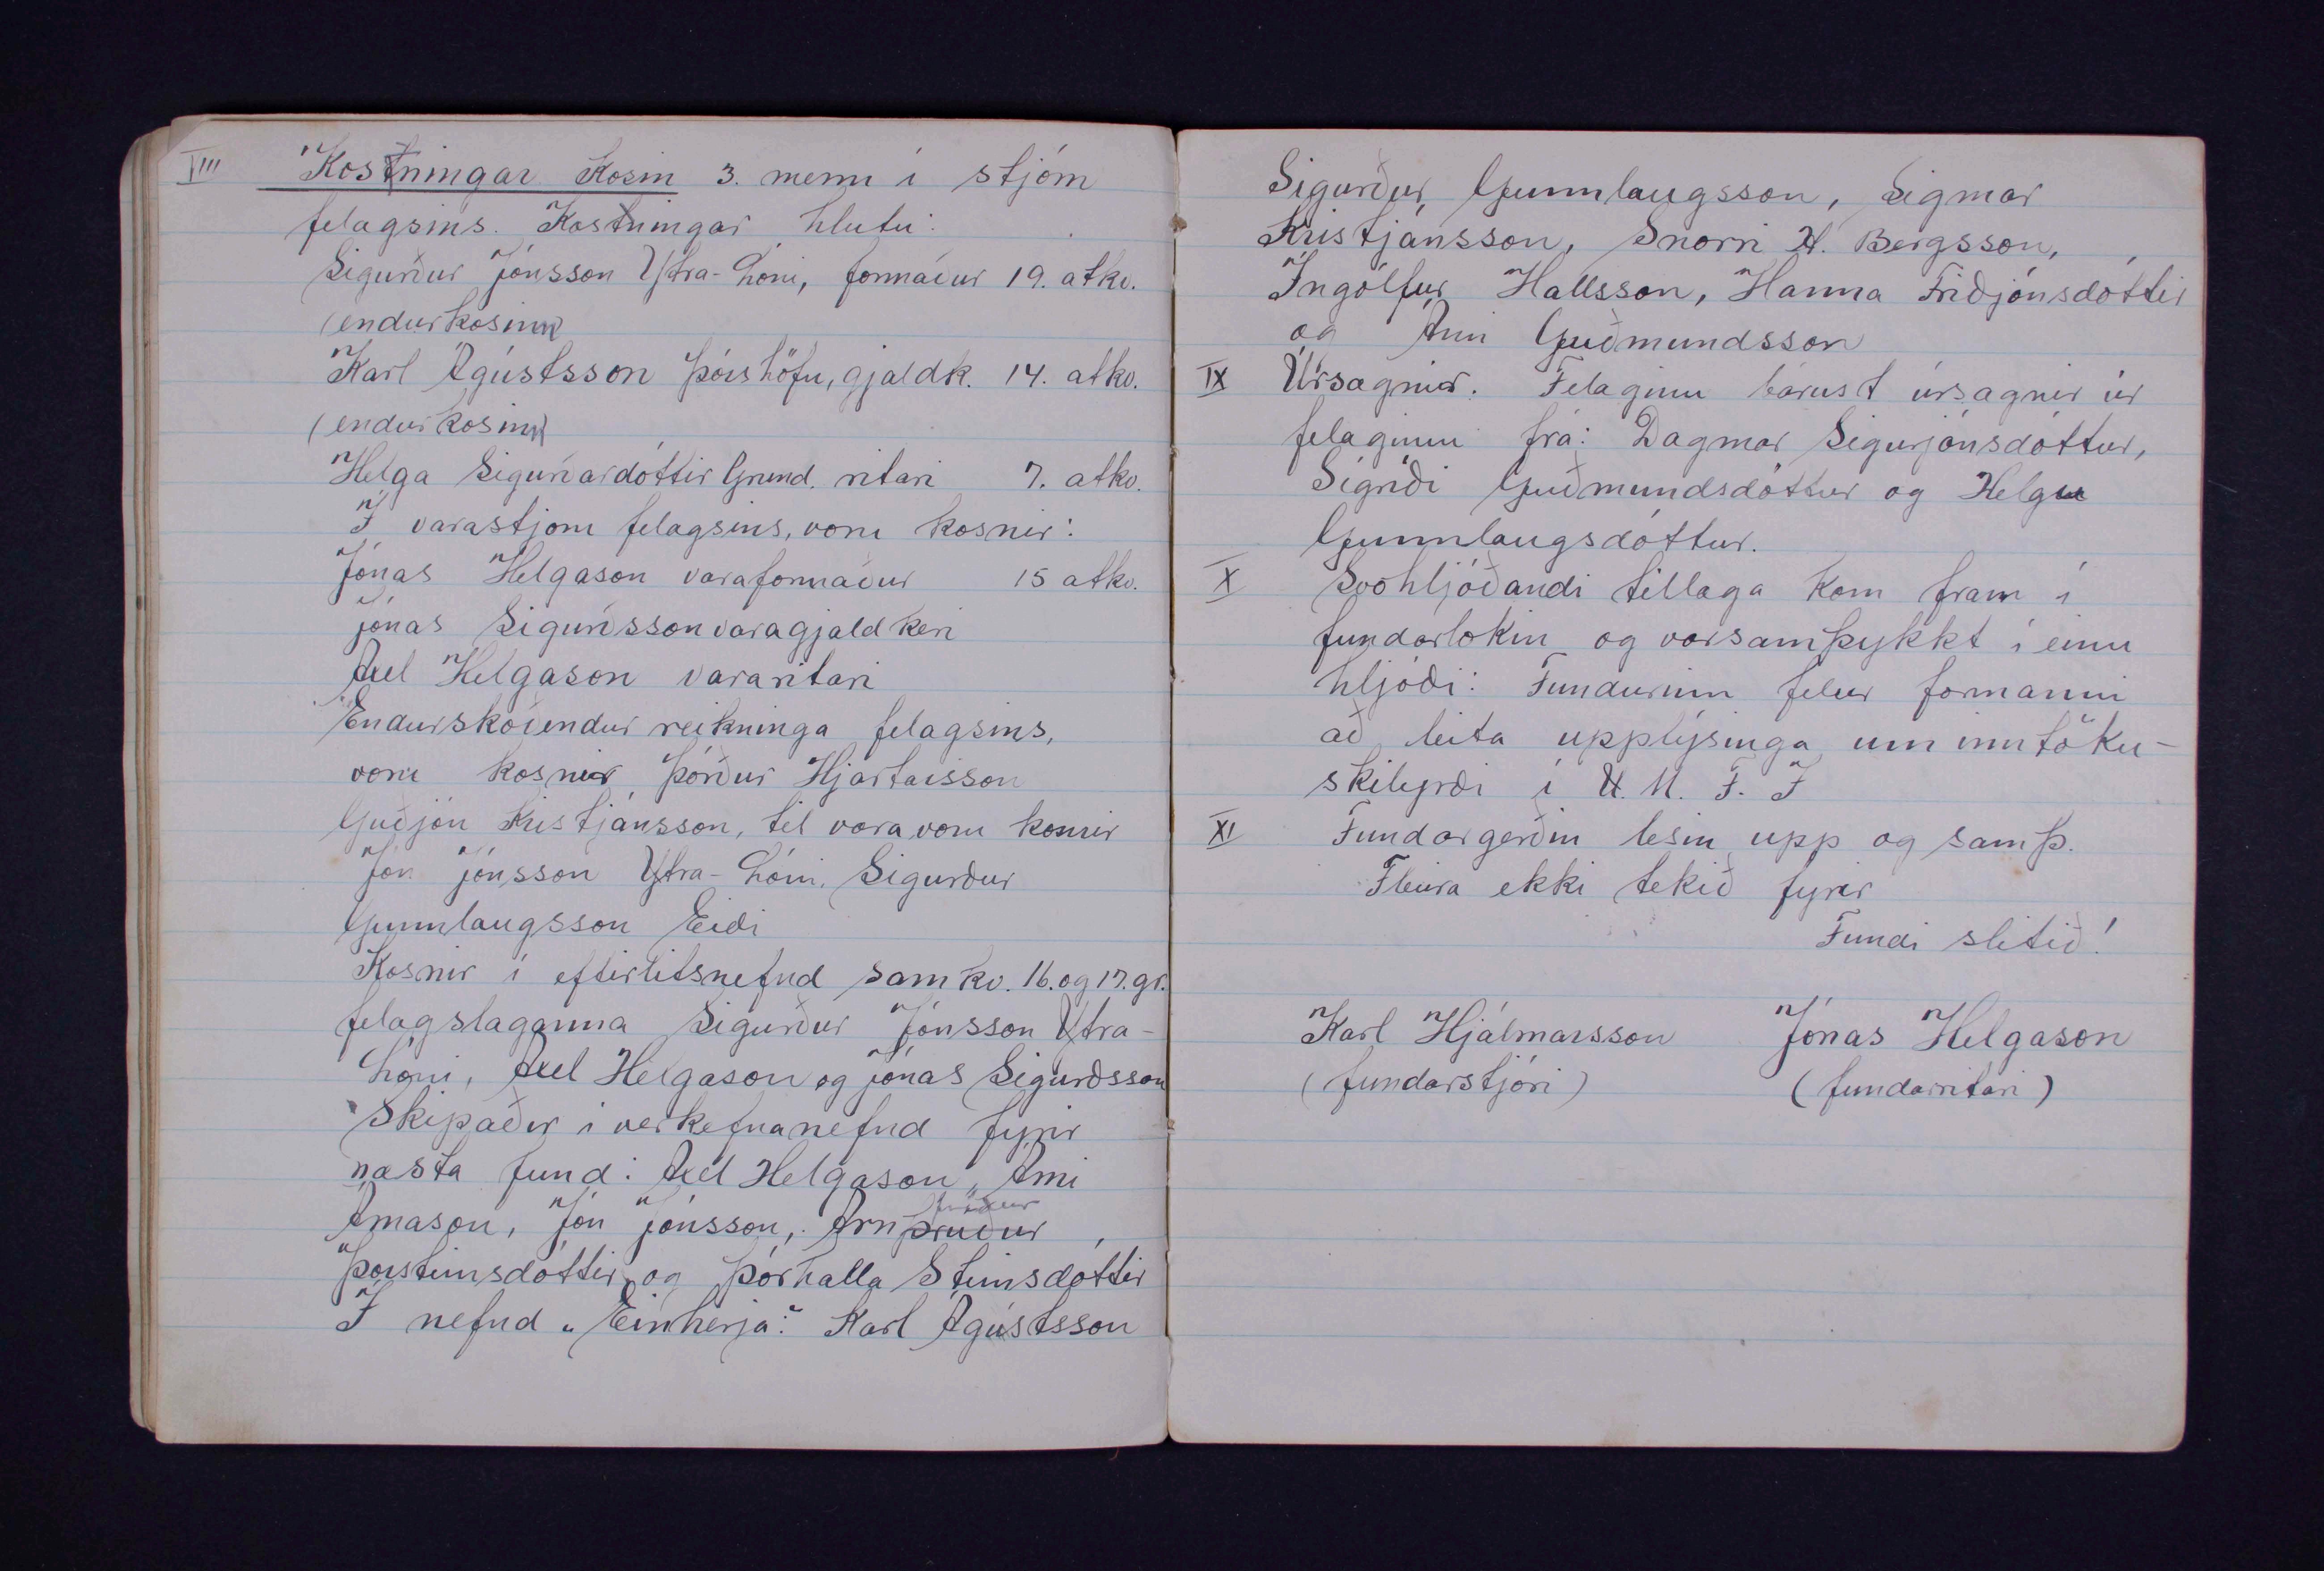 VIII Kostningar Kosin 3. menn í stjórn
felagsins. Kostningar hlutu:
Sigurður Jónsson Ytra-Lóni, formaður 19. atkv.
(endurkosinn)
Karl Ágústsson Þórshöfn, gjaldk. 14. atkv.
(endurkosinn)
Helga Sigurðardóttir Grund. ritari 7. atkv.
Í varastjorn felagsins, voru kosnir:
Jónas Helgason varaformaður 15 atkv.
Jónas Sigurðsson varagjaldkeri
Axel Helgason vararitari
Endurskoðendur reikninga felagsins,
voru kosnir Þórður Hjartarsson
Guðjón Kristjánsson, til vara voru kosnir
Jón Jónsson Ytra-Lóni. Sigurður
Gunnlaugsson Eiði
Kosnir í eftirlitsnefnd samkv. 16. og 17. gr.
felagslaganna Sigurður Jónsson Ytra-
Lóni, Axel Helgason og Jónas Sigurðsson
Skipaðir í verkefnanefnd fyrir
næsta fund: Axel Helgason, Árni
Árnason, Jón Jónsson, Arnþruður,
Þorsteinsdóttir og Þórhalla Steinsdóttir
Í nefnd „Einherja": Karl Ágústsson
Sigurður Gunnlaugsson, Sigmar
Kristjánsson, Snorri H. Bergsson,
Ingólfur Hallsson, Hanna Friðjónsdóttir
og Árni Guðmundsson
IX Úrsagnir. Felaginu bárust úrsagnir úr
felaginu frá: Dagmar Sigurjónsdóttur,
Sigríði Guðmundsdóttur og Helgu
Gunnlaugsdóttur.
X Svohljóðandi tillaga kom fram í
fundarlokin og varsamþykkt í einu
hljóði: Fundurinn felur formanni
að leita upplýsinga um inntöku-
skilyrði í U. M. F. Í
XI Fundargerðin lesin upp og samþ.
Fleira ekki tekið fyrir
Fundi slitið!
Karl Hjálmarsson Jónas Helgason
(fundarstjóri) (fundarritari)